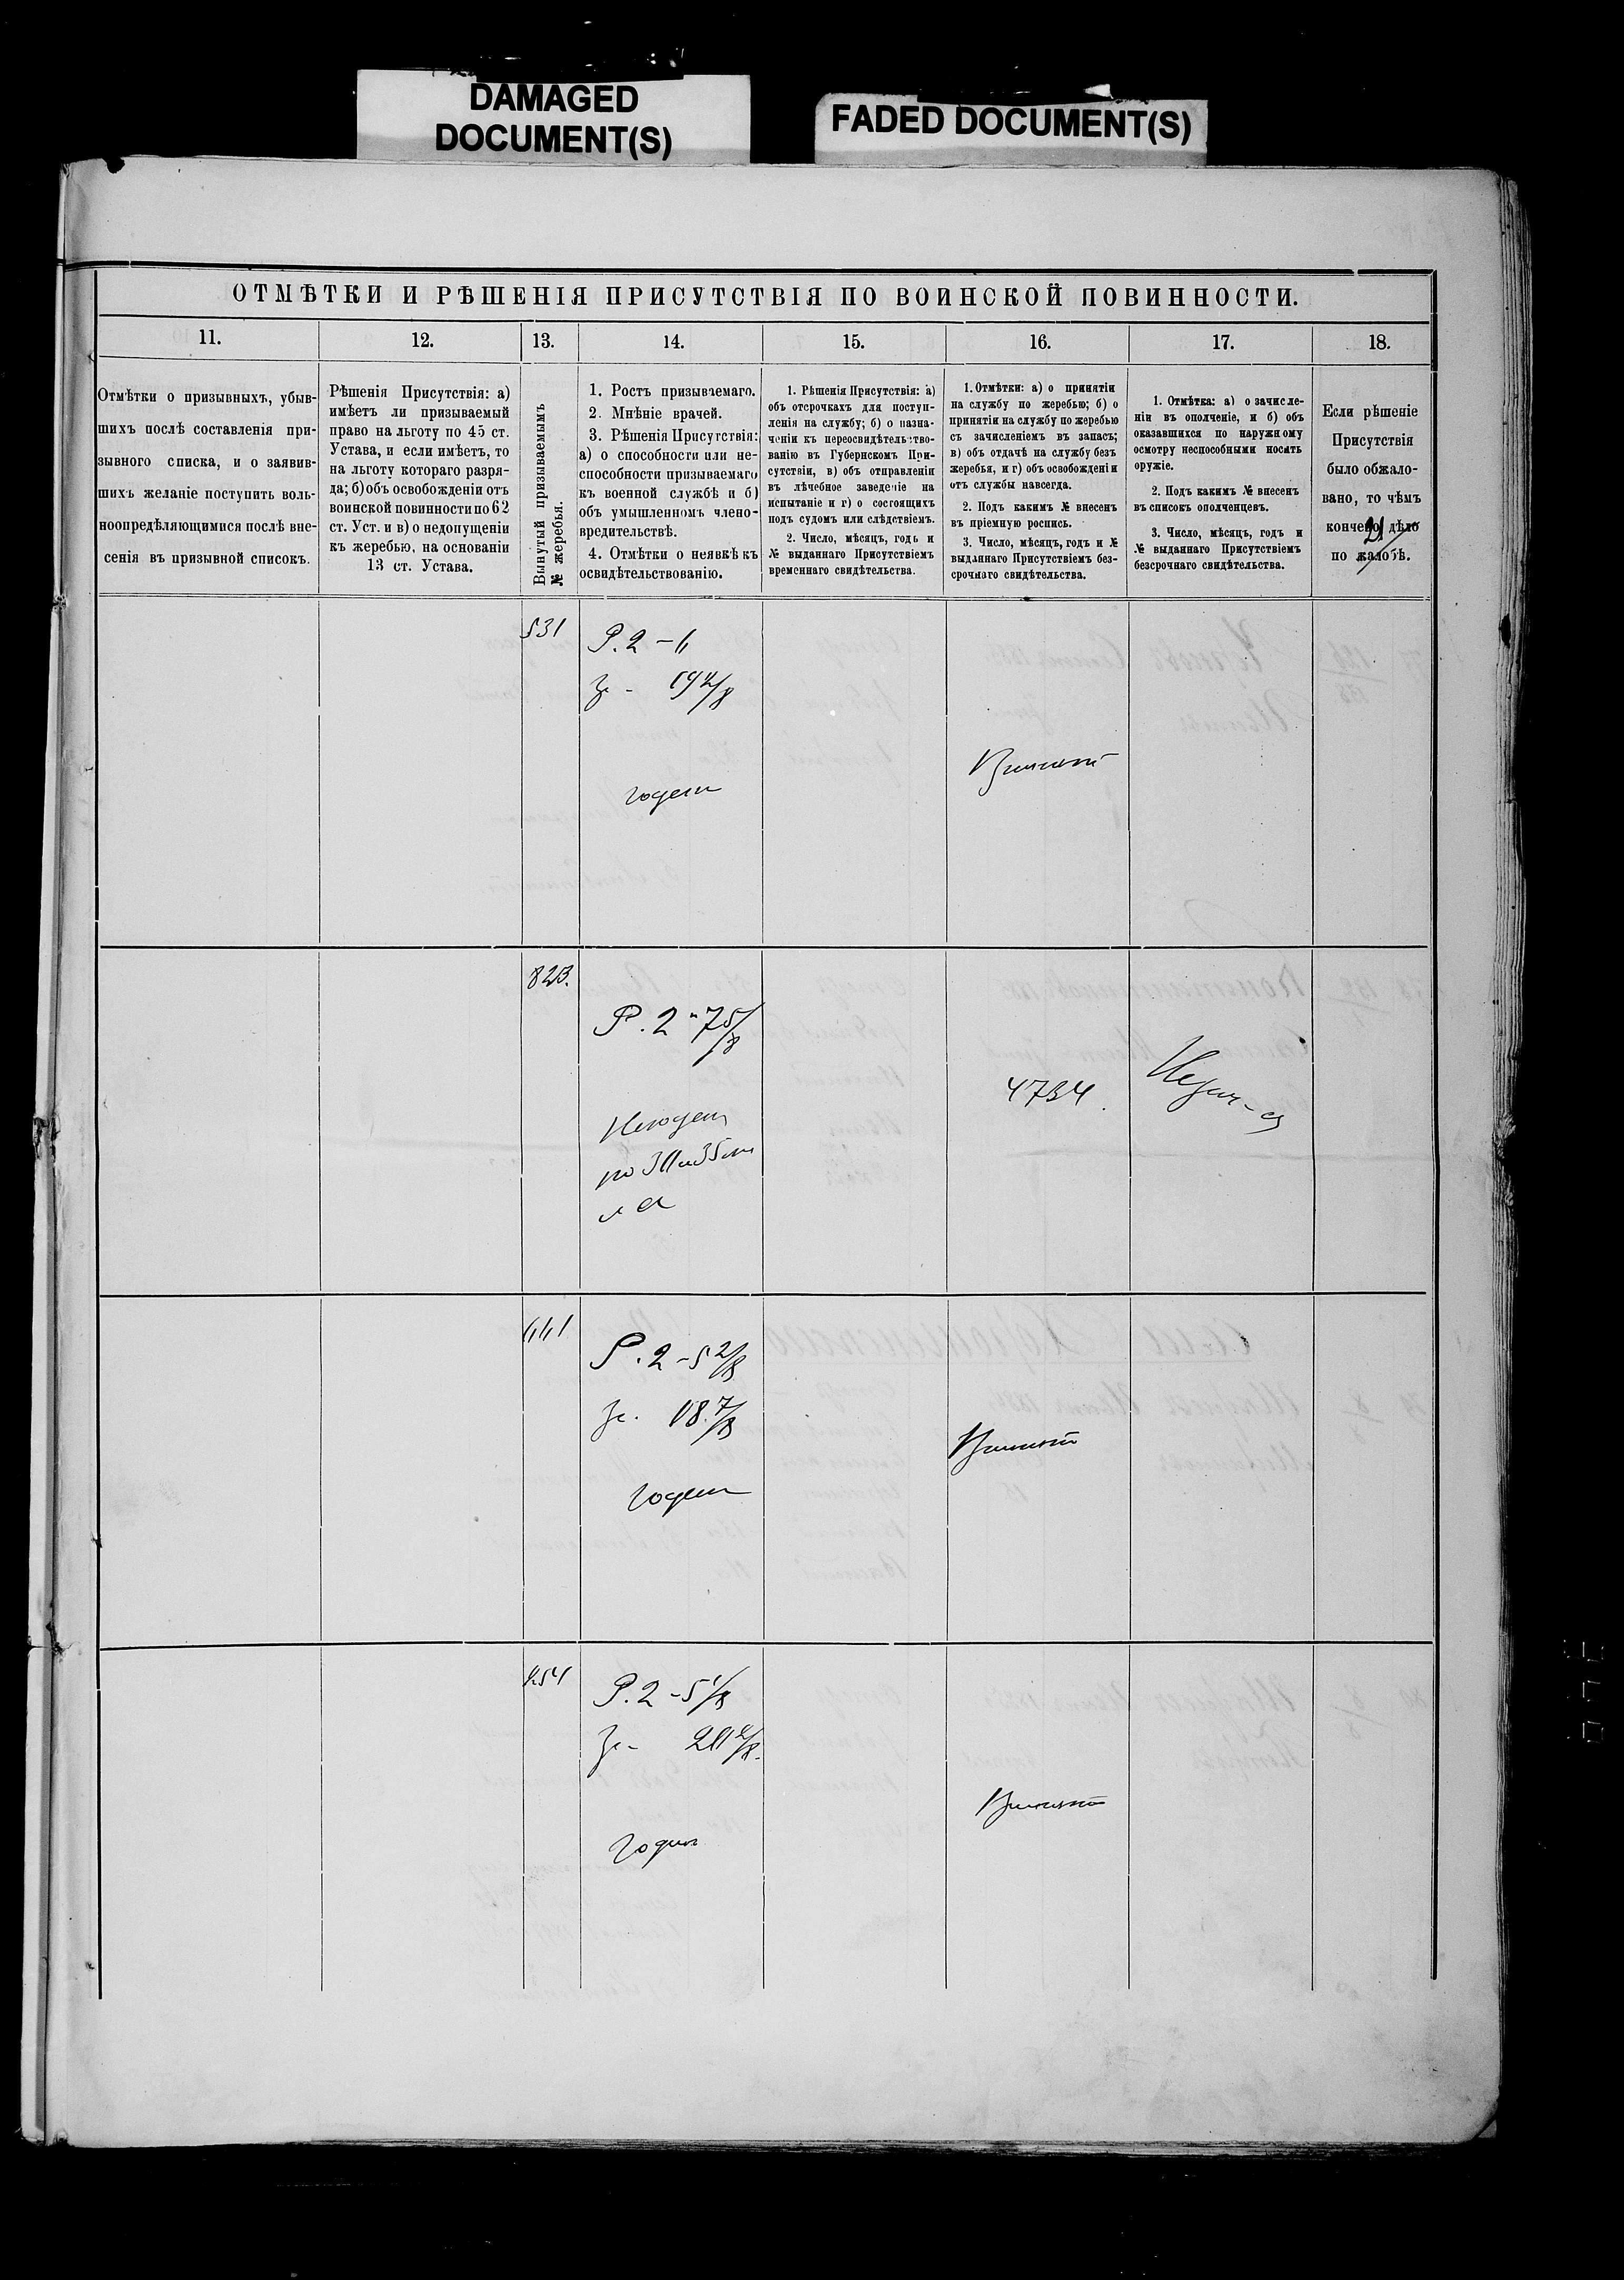 DAMAGED
DOCUMENT(S)
FADED DOCUMENT(S)
ОТМѢТКИ И РѢШЕНІЯ ПРИСУТСТВІЯ ПО ВОИНСКОЙ ПОВИННОСТИ.
11.
12.
13.
14.
15.
16.
17.
18.
Отмѣтки о призывныхъ, убыв-
шихъ послѣ составленія при-
зывного списка, и о заявив-
шихъ желаніе поступить воль-
ноопредѣляющимися послѣ вне-
сенія въ призывной списокъ.
Рѣшенія Присутствія: а)
имѣетъ ли призываемый
право на льготу по 45 ст.
Устава, и если имѣетъ, то
на льготу котораго разря-
да; б) объ освобожденіи отъ
воинской повинности по 62
ст. Уст. и в) о недопущеніи
къ жеребью, на основаніи
13 ст. Устава.
Вынутый призываемымъ
№ жеребья.
1. Ростъ призываемаго.
2. Мнѣніе врачей.
3. Рѣшенія Присутствія:
а) о способности или не-
способности призываемаго
къ военной службѣ и б)
объ умышленномъ члено-
вредительствѣ.
4. Отмѣтки о неявкѣ къ
освидѣтельствованію.
1. Рѣшенія Присутствія: а)
объ отсрочкахъ для поступ-
ленія на службу; б) о назна-
ченіи къ переосвидѣтельство-
ванію въ Губернскомъ При-
сутствіи, в) объ отправленіи
въ лѣчебное заведеніе на
испытаніе и г) о состоящихъ
подъ судомъ или слѣдствіемъ.
2. Число, мѣсяцъ, годъ и
№ выданнаго Присутствіемъ
временнаго свидѣтельства.
1. Отмѣтки: а) о принятіи
на службу по жеребью; б) о
принятіи на службу по жеребью
съ зачисленіемъ въ запасъ;
в) объ отдачѣ на службу безъ
жеребья, и г) объ освобожденіи
отъ службы навсегда.
2. Подъ какимъ № внесенъ
въ пріемную роспись.
3. Число, мѣсяцъ, годъ и №
выданнаго Присутствіемъ без-
срочнаго свидѣтельства.
1. Отмѣтка: а) о зачисле-
ніи въ ополченіе, и б) объ
оказавшихся по наружному
осмотру неспособными носить
оружіе.
2. Подъ какимъ № внесенъ
въ списокъ ополченцевъ.
3. Число, мѣсяцъ, годъ и
№ выданнаго Присутствіемъ
безсрочнаго свидѣтельства.
Если рѣшеніе
Присутствія
было обжало-
вано, то чѣмъ
кончено дѣло
по жалобѣ.
21
531
Р. 2 –
годенъ
Принятъ
823.
Р. 2 – 7 5/8
Негоденъ
4734.
Р. 2 – 5 2/8
18. 7/8
годенъ
Принятъ
Р. 2 – 5 1/8
годенъ
Принятъ